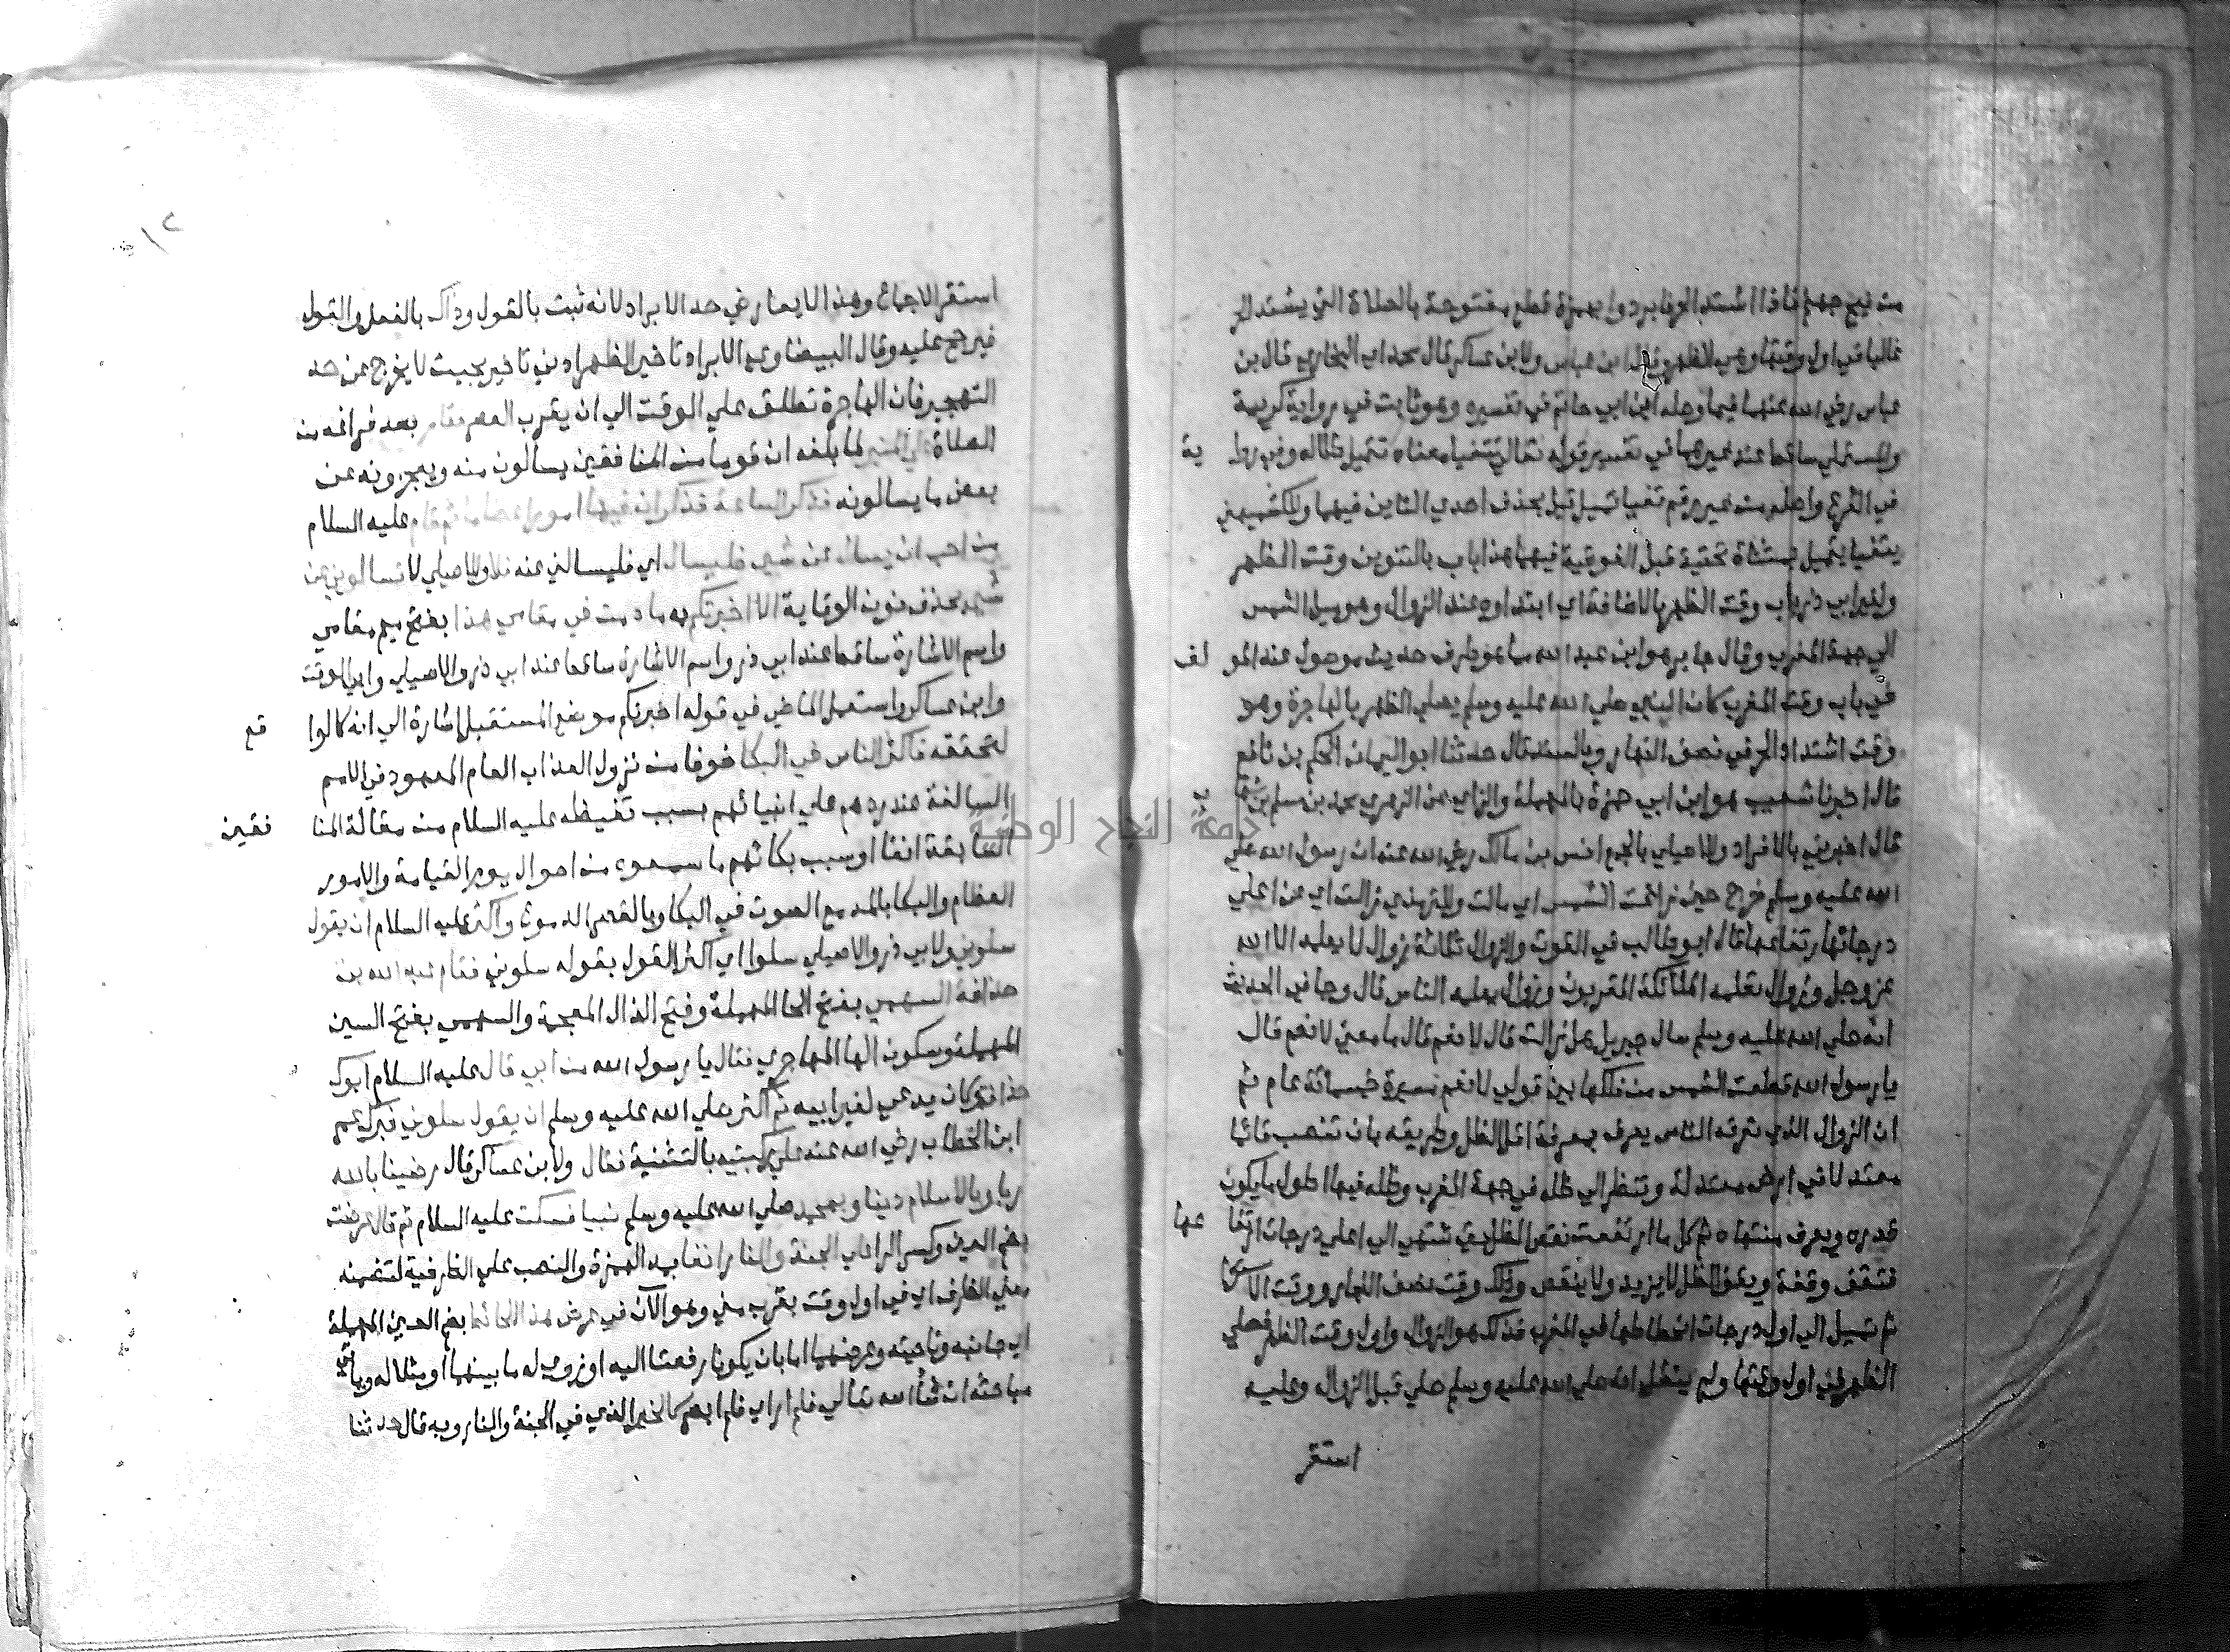 من فيح جهنم فاذا اشتد الحر فابردوا بهمزة قطع مفتوحة بالصلاة التي يشتد الحر
غالبا في اول وقتها وهي الظهر وقال ابن عباس ولابن عساكر قال محمد اي البخاري قال بن
عباس رضي الله عنهما فيما وصله ابن ابي حاتم في تفسيره وهو ثابت في رواية كريمة
والمستملي ساقط عند غيرهما في تفسير قوله تعالى تتفيا معناه تتميل ظلاله وفي روا ية
في الفرع واصله من غير رقم تفيا تميل قيل بحذف احدي التاين فيهما وللكشميهني
يتفيا يتميل بمثناة تحتية قبل الفوقية فيهما هذا باب بالتنوين وقت الظهر
ولغير ابي ذر باب وقت الظهر بالاضافة اي ابتداوه عند الزوال وهو ميل الشمس
الي جهة المغرب وقال جابر هو ابن عبد الله مما هو طرف حديث موصول عند المو لف
في باب وقت المغرب كان النبي صلي الله عليه وسلم يصلي الظهر بالهاجرة وهو
وقت اشتداد الحر في نصف النهار وبالسند قال حدثنا ابو اليمان الحكم بن نافع
قال اخبرنا شعيب هو ابن ابي حمزة بالمهملة والزاي عن الزهري محمد بن مسلم بن شهاب
قال اخبرني بالافراد وللاصيلي بالجمع انس بن مالك رضي الله عنه ان رسول الله صلي
الله عليه وسلم خرج حين زاغت الشمس اي مالت وللترمذي زالت اي عن اعلي
درجات ارتفاعها قال ابو طالب في القوت والزوال ثلاثة زوال لا يعلمه الا الله
عز وجل وزوال تعلمه الملائكة المقربون وزوال يعلمه الناس قال وجا في الحديث
انه صلي الله عليه وسلم سال جبريل هل زالت قال لا نعم قال ما معني لا نعم قال
يا رسول الله قطعت الشمس من فلكها بين قولي لا نعم مسيرة خمسمائة عام ثم
ان الزوال الذي تعرفه الناس يعرف بمعرفة اقل الظل وطريقه بان تنصب قائما
معتدلا في ارض معتدلة وتنظر الي ظله في جهة المغرب وظله فيها اطول ما يكون
قدره ويعرف منتهاه ثم كل ما ارتفعت نقص الظل حتي تنتهي الي اعلي درجات ارتفا عها
فتقف وقفة ويقف الظل لا يزيد ولا ينقص وذلك وقت نصف النهار ووقت الاستوا
ثم تميل الي اول درجات انحطاطها في المغرب فذلك هو الزوال واول وقت الظهر فصلي
الظهر في اول وقتها ولم ينقل انه صلي الله عليه وسلم صلي قبل الزوال وعليه
استقر
استقر الاجماع وهذا لا يعارض حد الابراد لانه ثبت بالقول وذاك بالفعل والقول
فيرجح عليه وقال البيضاوي الابراد تاخير الظهر ادني تاخير بحيث لا يخرج عن حد
التهجير فان الهاجرة تطلق علي الوقت الي ان يقرب العصر فقام بعد فراغه من
الصلاة علي المنبر لما بلغه ان قوما من المنافقين يسالون منه ويعجزونه عن
بعض ما يسالونه فذكر الساعة فذكر ان فيها امورا عظاما ثم قام عليه السلام
من احب ان يسال عن شيي فليسال اي فليسالني عنه فلا وللاصيلي لا تسالوني عن
شيي بحذف نون الوقاية الا اخبرتكم به ما دمت في مقامي هذا بفتح ميم مقامي
واسم الاشارة ساقط عند ابي ذر واسم الاشارة ساقط عند ابي ذر والاصيلي وابي الوقت
وابن عساكر واستعمل الماضي في قوله اخبرتكم موضع المستقبل اشارة الي انه كالوا قع
لتحققه فاكثر الناس في البكا خوفا من نزول العذاب العام المعهود في الامم
السالفة عند ردهم علي انبيائهم بسبب تغيظه عليه السلام من مقالة المنا فقين
السابقة انفا او سبب بكائهم ما سمعوه من اهوال يوم القيامة والامور
العظام والبكا بالمد مع الصوت في البكا وبالقصر الدموع واكثر عليه السلام ان يقول
سلوني ولابي ذر والاصيلي سلوا اي اكثر القول بقوله سلوني فقام عبد الله بن
حذافة السهمي بفتح الحا المهملة وفتح الذال المعجمة والسهمي بفتح السين
المهملة وسكون الها المهاجري فقال يا رسول الله من ابي قال عليه السلام ابوك
حذافة وكان يدعي لغير ابيه ثم اكثر صلي الله عليه وسلم ان يقول سلوني فبرك عمر
ابن الخطاب رضي الله عنه علي ركبتيه بالتثنية فقال ولابن عساكر قال رضينا بالله
ربا وبالاسلام دينا وبمحمد صلي الله عليه وسلم نبيا فسكت عليه السلام ثم قال عرضت
بضم العين وكسر الرا علي الجنة والنار انفا بمد الهمزة والنصب علي الظرفية لتضمنه
معني الظرف اي في اول وقت بقرب مني وهو الآن في عرض هذا الحائط بضم العين المهملة
اي جانبه وناحيته وعرضهما اما بان يكونا رفعتا اليه او زوي له ما بينهما او مثلا له وياتي
مباحثه ان شا الله تعالي فلم ار اي فلم ابصر كالخير الذي في الجنة والنار وبه قال حدثنا
جامعة النجاح الوطنية